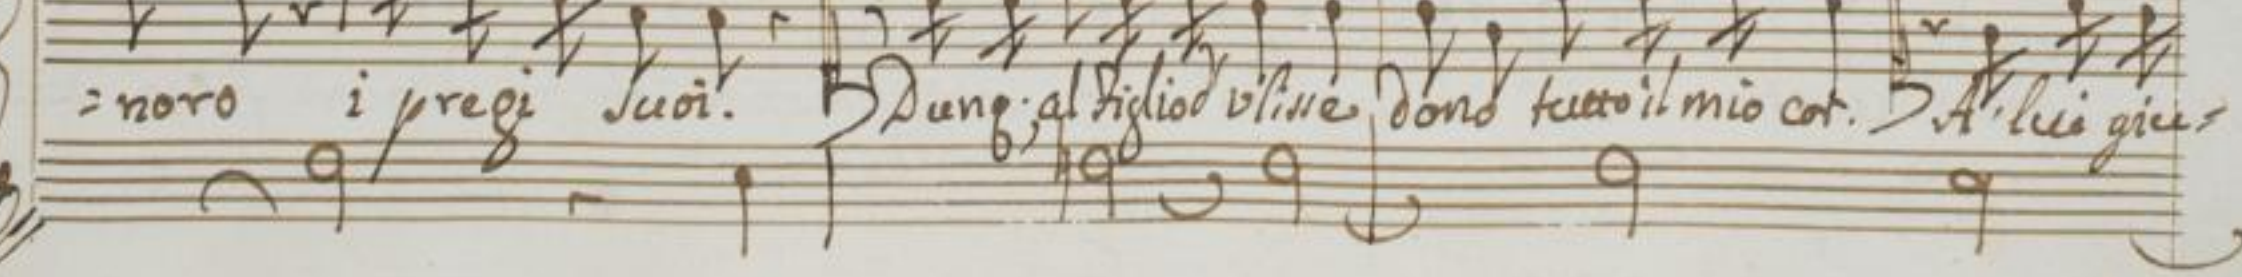 =noro i pregi suoi. Dunq; al figlio d'ulisse dono tutto il mio cor. A' lui giu=